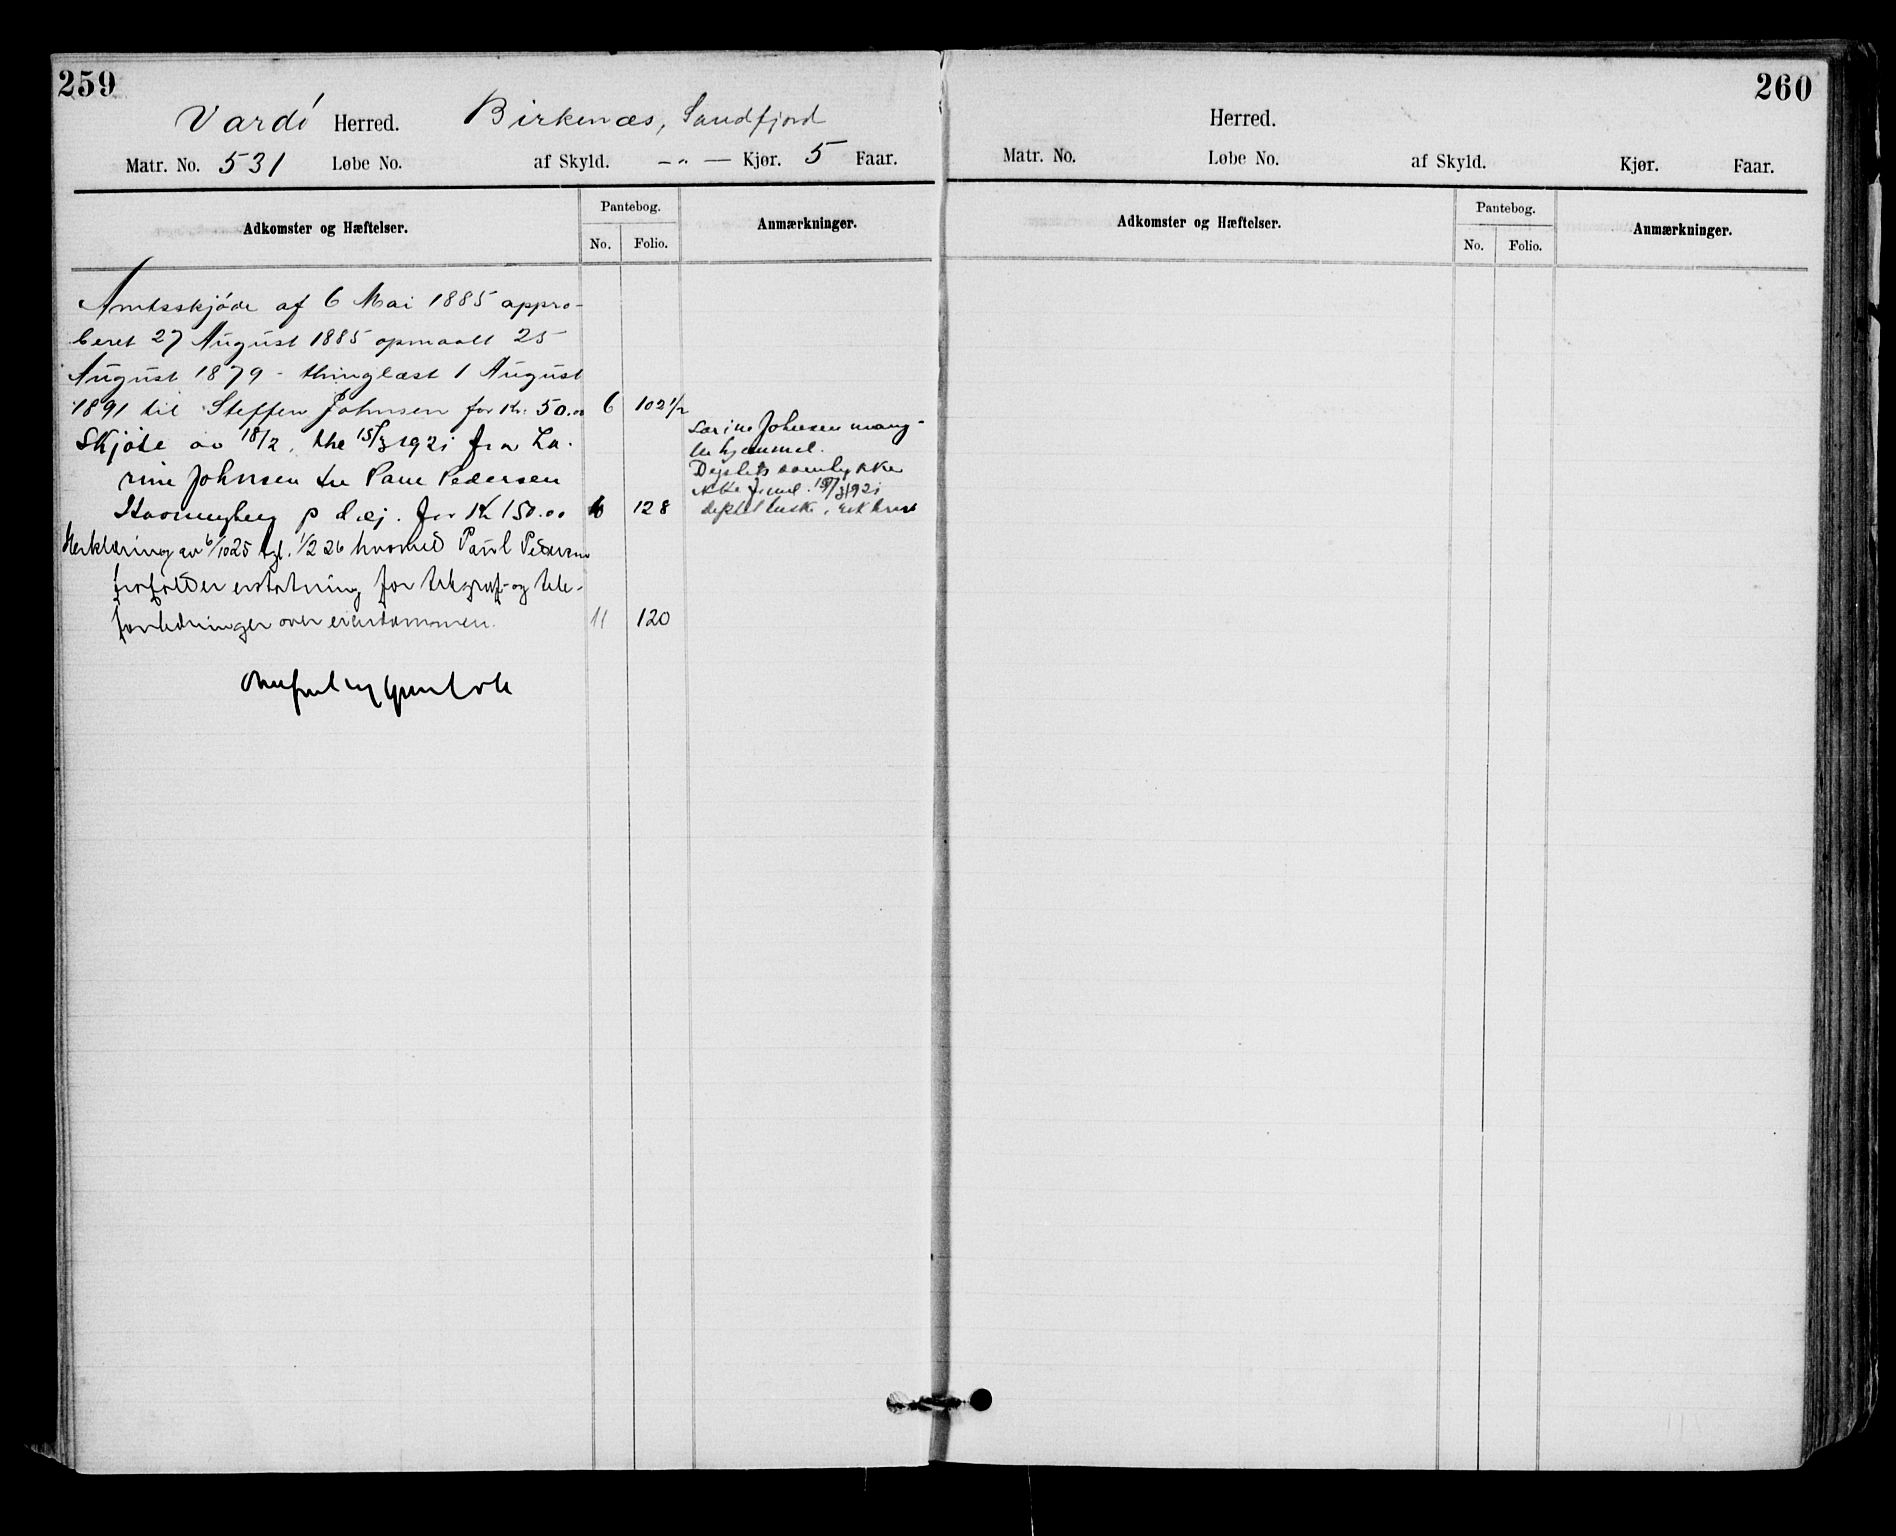 259
Vardö Herred. Birkenæs, Sandfjord
Matr. No. 531 Løbe No. af Skyld. -"- Kjør. 5 Faar.
Adkomster og Hæftelser. Pantebog. Anmærkninger.
No. Folio.
Amtsskjöde af 6 Mai 1885 appro-
beret 27 August 1885 opmaalt 25
August 1879 - thinglæst 1 August
1891 til Steffen Johnsen for Kr. 50.00 6 102 1/2
Skjöte av 18/2, thl 15/3 1921 fra La-
rine Johnsen til Paul Pedersen
p d. ej. for Kr 150.00 6 128
Larine Johnsen mang-
ler hjemmel.
15/3 1921
Erklæring av 6/10 25 tgl. 1/2 26 hvorved Paul Pedersen
frafalder erstatning for telegraf- og tele-
fonledninger over eiendommen. 11 120
260
Herred.
Matr. No. Løbe No. af Skyld. Kjør. Faar.
Adkomster og Hæftelser. Pantebog. Anmærkninger.
No. Folio.